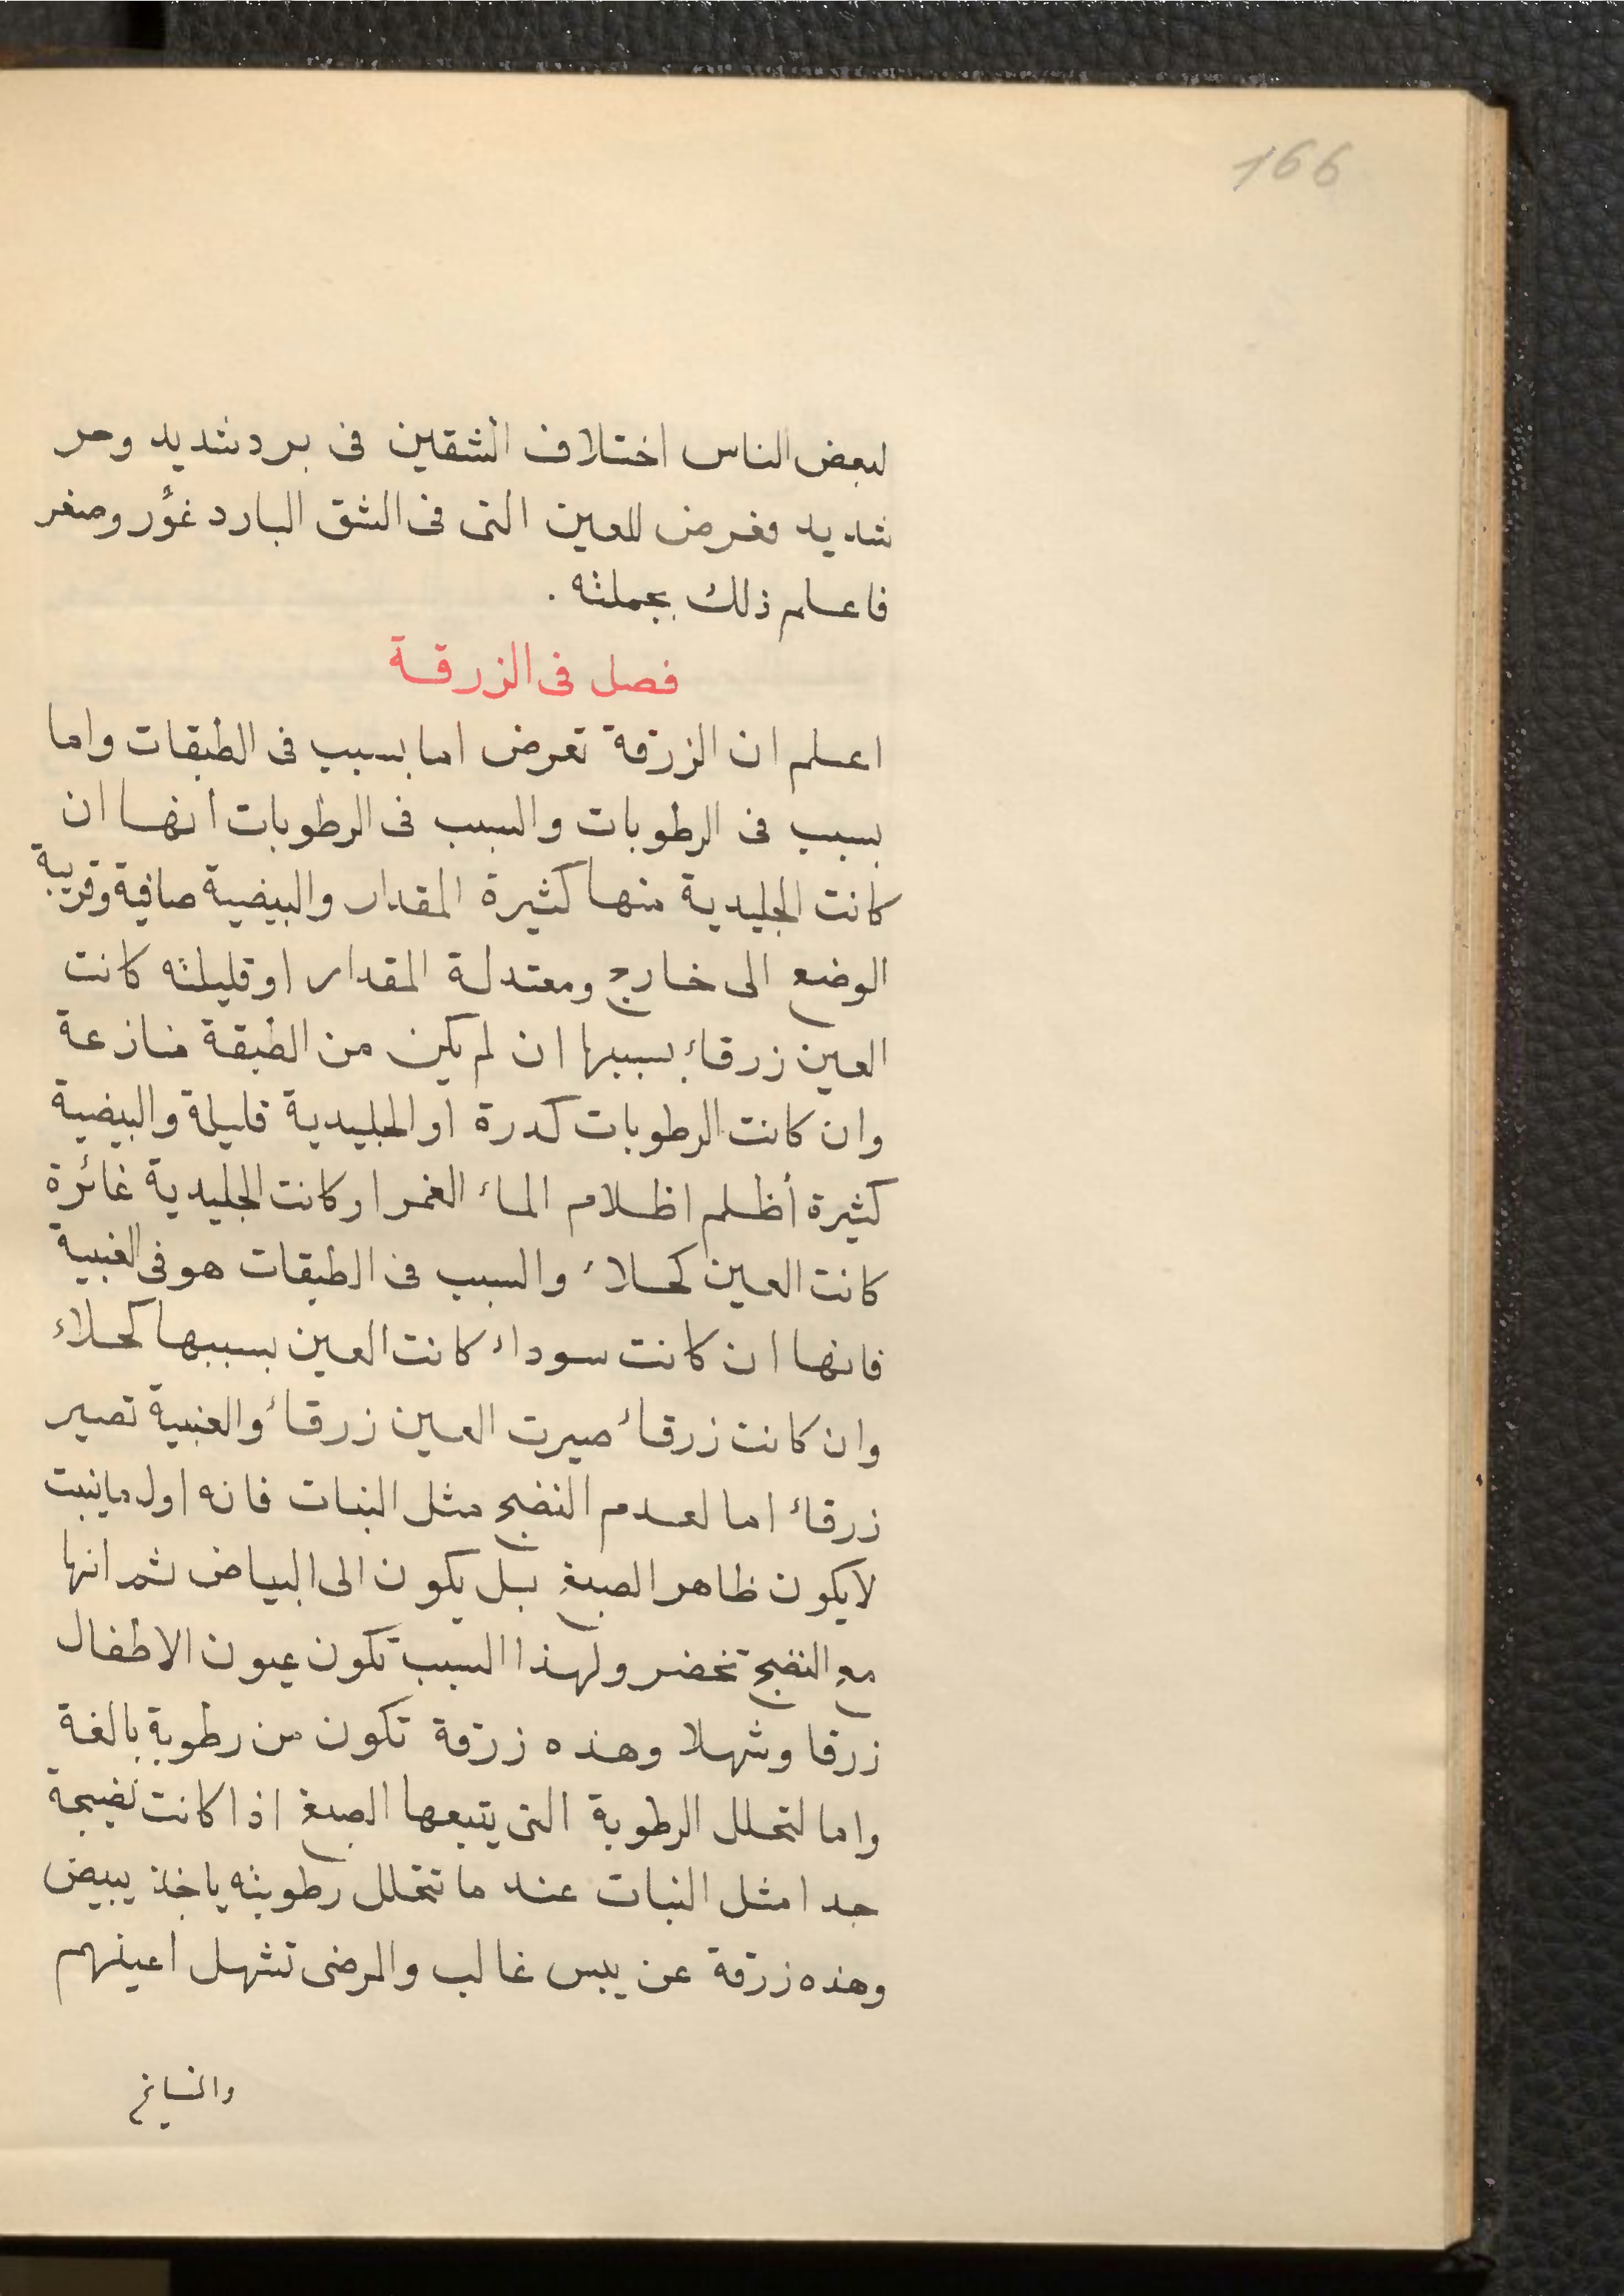 166
لبعض الناس اختلاف الشقين فى برد شديد وحر
شديد فعرض للعين التى فى الشق البارد غؤر وصغر
فاعلم ذلك بجملته .
فصل فى الزرقة
اعلم ان الزرقة تعرض اما بسبب فى الطبقات واما
بسبب فى الرطوبات والسبب فى الرطوبات انها ان
كانت الجليدية منها كثيرة المقدار والبيضية صافية وقريبة
الوضع الى خارج ومعتدلة المقدار او قليلته كانت
العين زرقاء بسببها ان لم يكن من الطبقة منازعة
وان كانت الرطوبات كدرة او الجليدية قليلة والبيضية
كثيرة أظلم اظلام الماء الغمر او كانت الجليدية غائرة
كانت العين كحلاء والسبب فى الطبقات هو فى العنبية
فانها ان كانت سوداء كانت العين بسببها كحلاء
وان كانت زرقاء صيرت العين زرقاء والعنبية تصير
زرقاء اما لعدم النضج مثل النبات فانه اول ما ينبت
لا يكون ظاهر الصبغ بل يكون الى البياض ثم انها
مع النضج تخضر ولهذا السبب تكون عيون الاطفال
زرقا وشهلا وهذه زرقة تكون من رطوبة بالغة
واما لتحلل الرطوبة التى يتبعها الصبغ اذا كانت نضيجة
جدا مثل النبات عند ما تتحلل رطوبته ياخذ يبيض
وهذه زرقة عن يبس غالب والمرضى تشهل اعينهم
والمشايخ